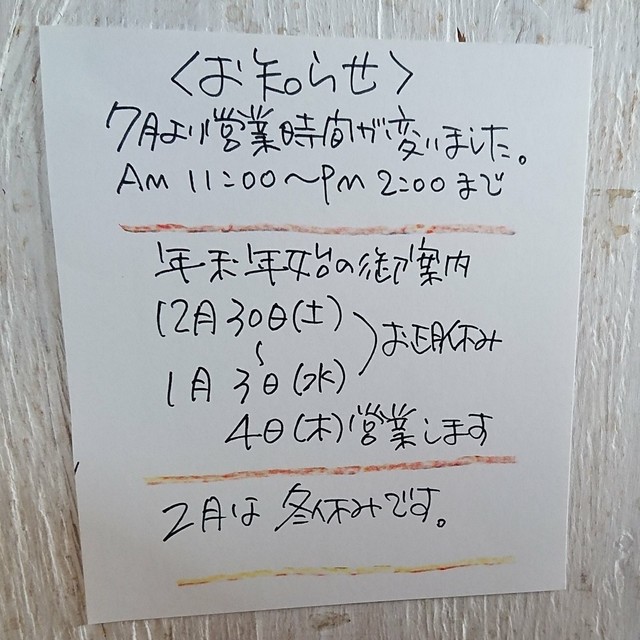 〈お知らせ〉
7月より営業時間が変りました。
AM 11:00〜PM 2:00まで
年末年始の御案内
12月30日(土)
〜
お正月休み
1月3日(水)
4日(木)営業します
2月は冬休みです。